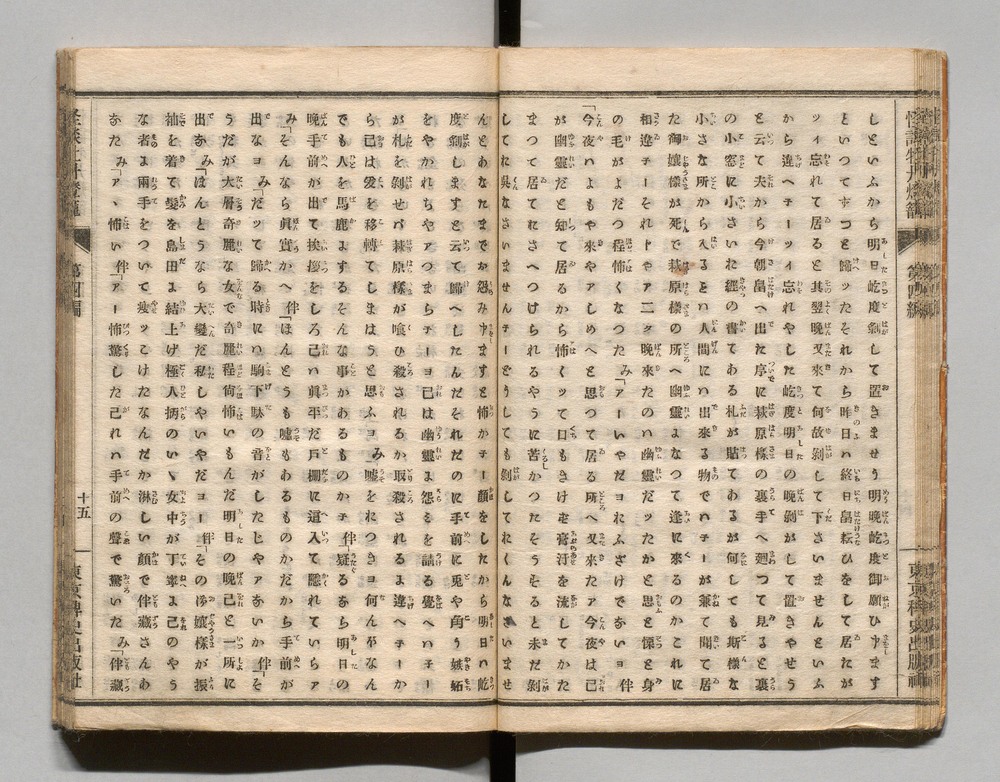 しといふから明日屹度剝して置きませう明晩屹度御願ひ申ます
といつてずつと歸ッたそれから昨日ハ終日畠耘ひをして居たが
ツイ忘れて居ると其翌晩又來て何故剝して下さいませんといふ
から違へチーツイ忘れやした屹度明日の晩剝がして置きやせう
と云て夫から今朝畠へ出た序に萩原様の裏手へ廻つて見ると裏
の小窓に小さいお經の書てある札が貼てあるが何しても斯様な
小さな所から入るとハ人間にハ出來る物でハチーが兼て聞て居
た御孃様が死で萩原様の所へ幽靈よなつて逢に來るのかこれに
和違チーそれトやア二タ晩來たのハ幽靈だッたかと思と慄と身
の毛がよだつ程怖くなつたみ「アーいやだよおふざけで奈いヨ伴
「今夜ハよもや來やアしめへと思つて居る所へ又來たア今夜は己
が幽靈だと知て居るから怖くッて口もきけ老膏汗を流してかた
まつて居ておさへつけられるやうに苦かつたそうすると未だ剝
してお呉なさいませんチーどうしても剝しておくんなさいませ
んとあなたまでお怨み申ますと怖かチー顏をしたから明日ハ屹
度剝しますと云て歸へしたんだそれだのに手前に兎や角う嫉妬
をやかれちやアつまらチーヨ己は幽靈よ怨るを請る覺へハチー
が札を剝せバ萩原様が喰ひ殺されるか取殺されるよ違へチーか
ら己は爰を移轉てしまはうと思ふヨみ「噓をおつきヨ何んぞなん
でも人を馬鹿よするそんな事があるものかチへ伴「疑るなら明日の
晩手前が出て挨接をしろ己ハ眞平だ戸棚に這入て隱れていらァ
み「そんなら眞實かへ伴「ほんとうも噓もあるものかだから手前が
出なヨみ「だッて歸る時にハ駒下駄の音がしたじやァ奈いか伴「そ
うだが大層奇麗な女で奇麗程尙怖いもんだ明日の晩己と一所に
出奈み「ほんとうなら大變だ私しやいやだヨー伴「その孃様が振
袖を着て髮を島田よ結上げ極人柄のいゝ女中が丁寧よ己のやう
な者よ兩手をついて瘦ッこけたなんだか淋しい顏で伴藏さんあ
なたみ「ァヽ怖い伴「アー怖驚した己れハ手前の聲で驚いたみ「伴藏
第四編
十五
東京稗史出版社